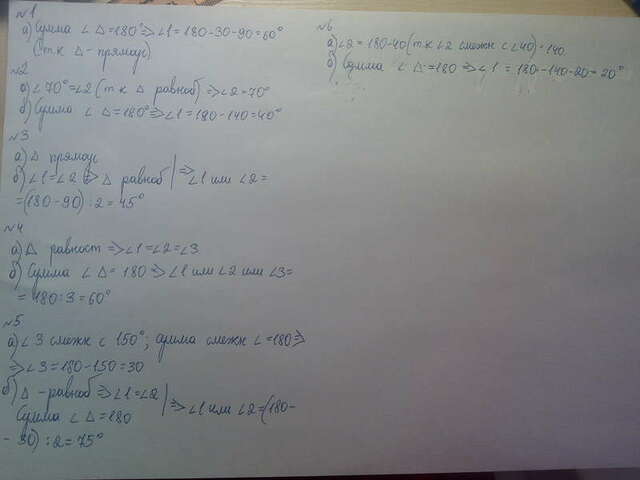 №1
а) Сумма ∠ △=180°⇒∠1=180-30-90=60°
(т к △ - прямоус)
№2
а) ∠70°=∠2 (т к △ равноб) ⇒∠2=70°
б) Сумма ∠ △=180°⇒∠1=180-140=40°
№3
а) △ прямоус
б) ∠1=∠2 ⇒ △ равноб | ⇒ ∠1 или ∠2=
=(180-90):2=45°
№4
а) △ равност ⇒∠1=∠2=∠3
б) Сумма ∠ △= 180 ⇒∠1 или ∠2 или ∠3=
= 180:3=60°
№5
а) ∠3 смежн с 150°; сумма смежн ∠=180⇒
⇒∠3=180-150=30
б) △ -равноб ⇒∠1=∠2
Сумма ∠ △=180 | ⇒∠1 или ∠2=(180-
- 30):2=75°
№6
а) ∠2 = 180-40 (т к ∠2 смежн с ∠40)=140
б) Сумма ∠ △=180 ⇒∠1 = 180-140-20=20°